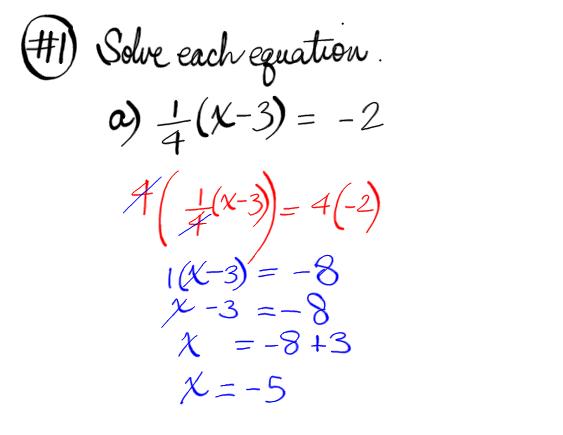 #1 Solve each equation.
a) 1/4 (x-3) = -2
4( 1/4 (x-3)) = 4(-2)
1(x-3) = -8
x -3 = -8
x = -8+3
x = -5